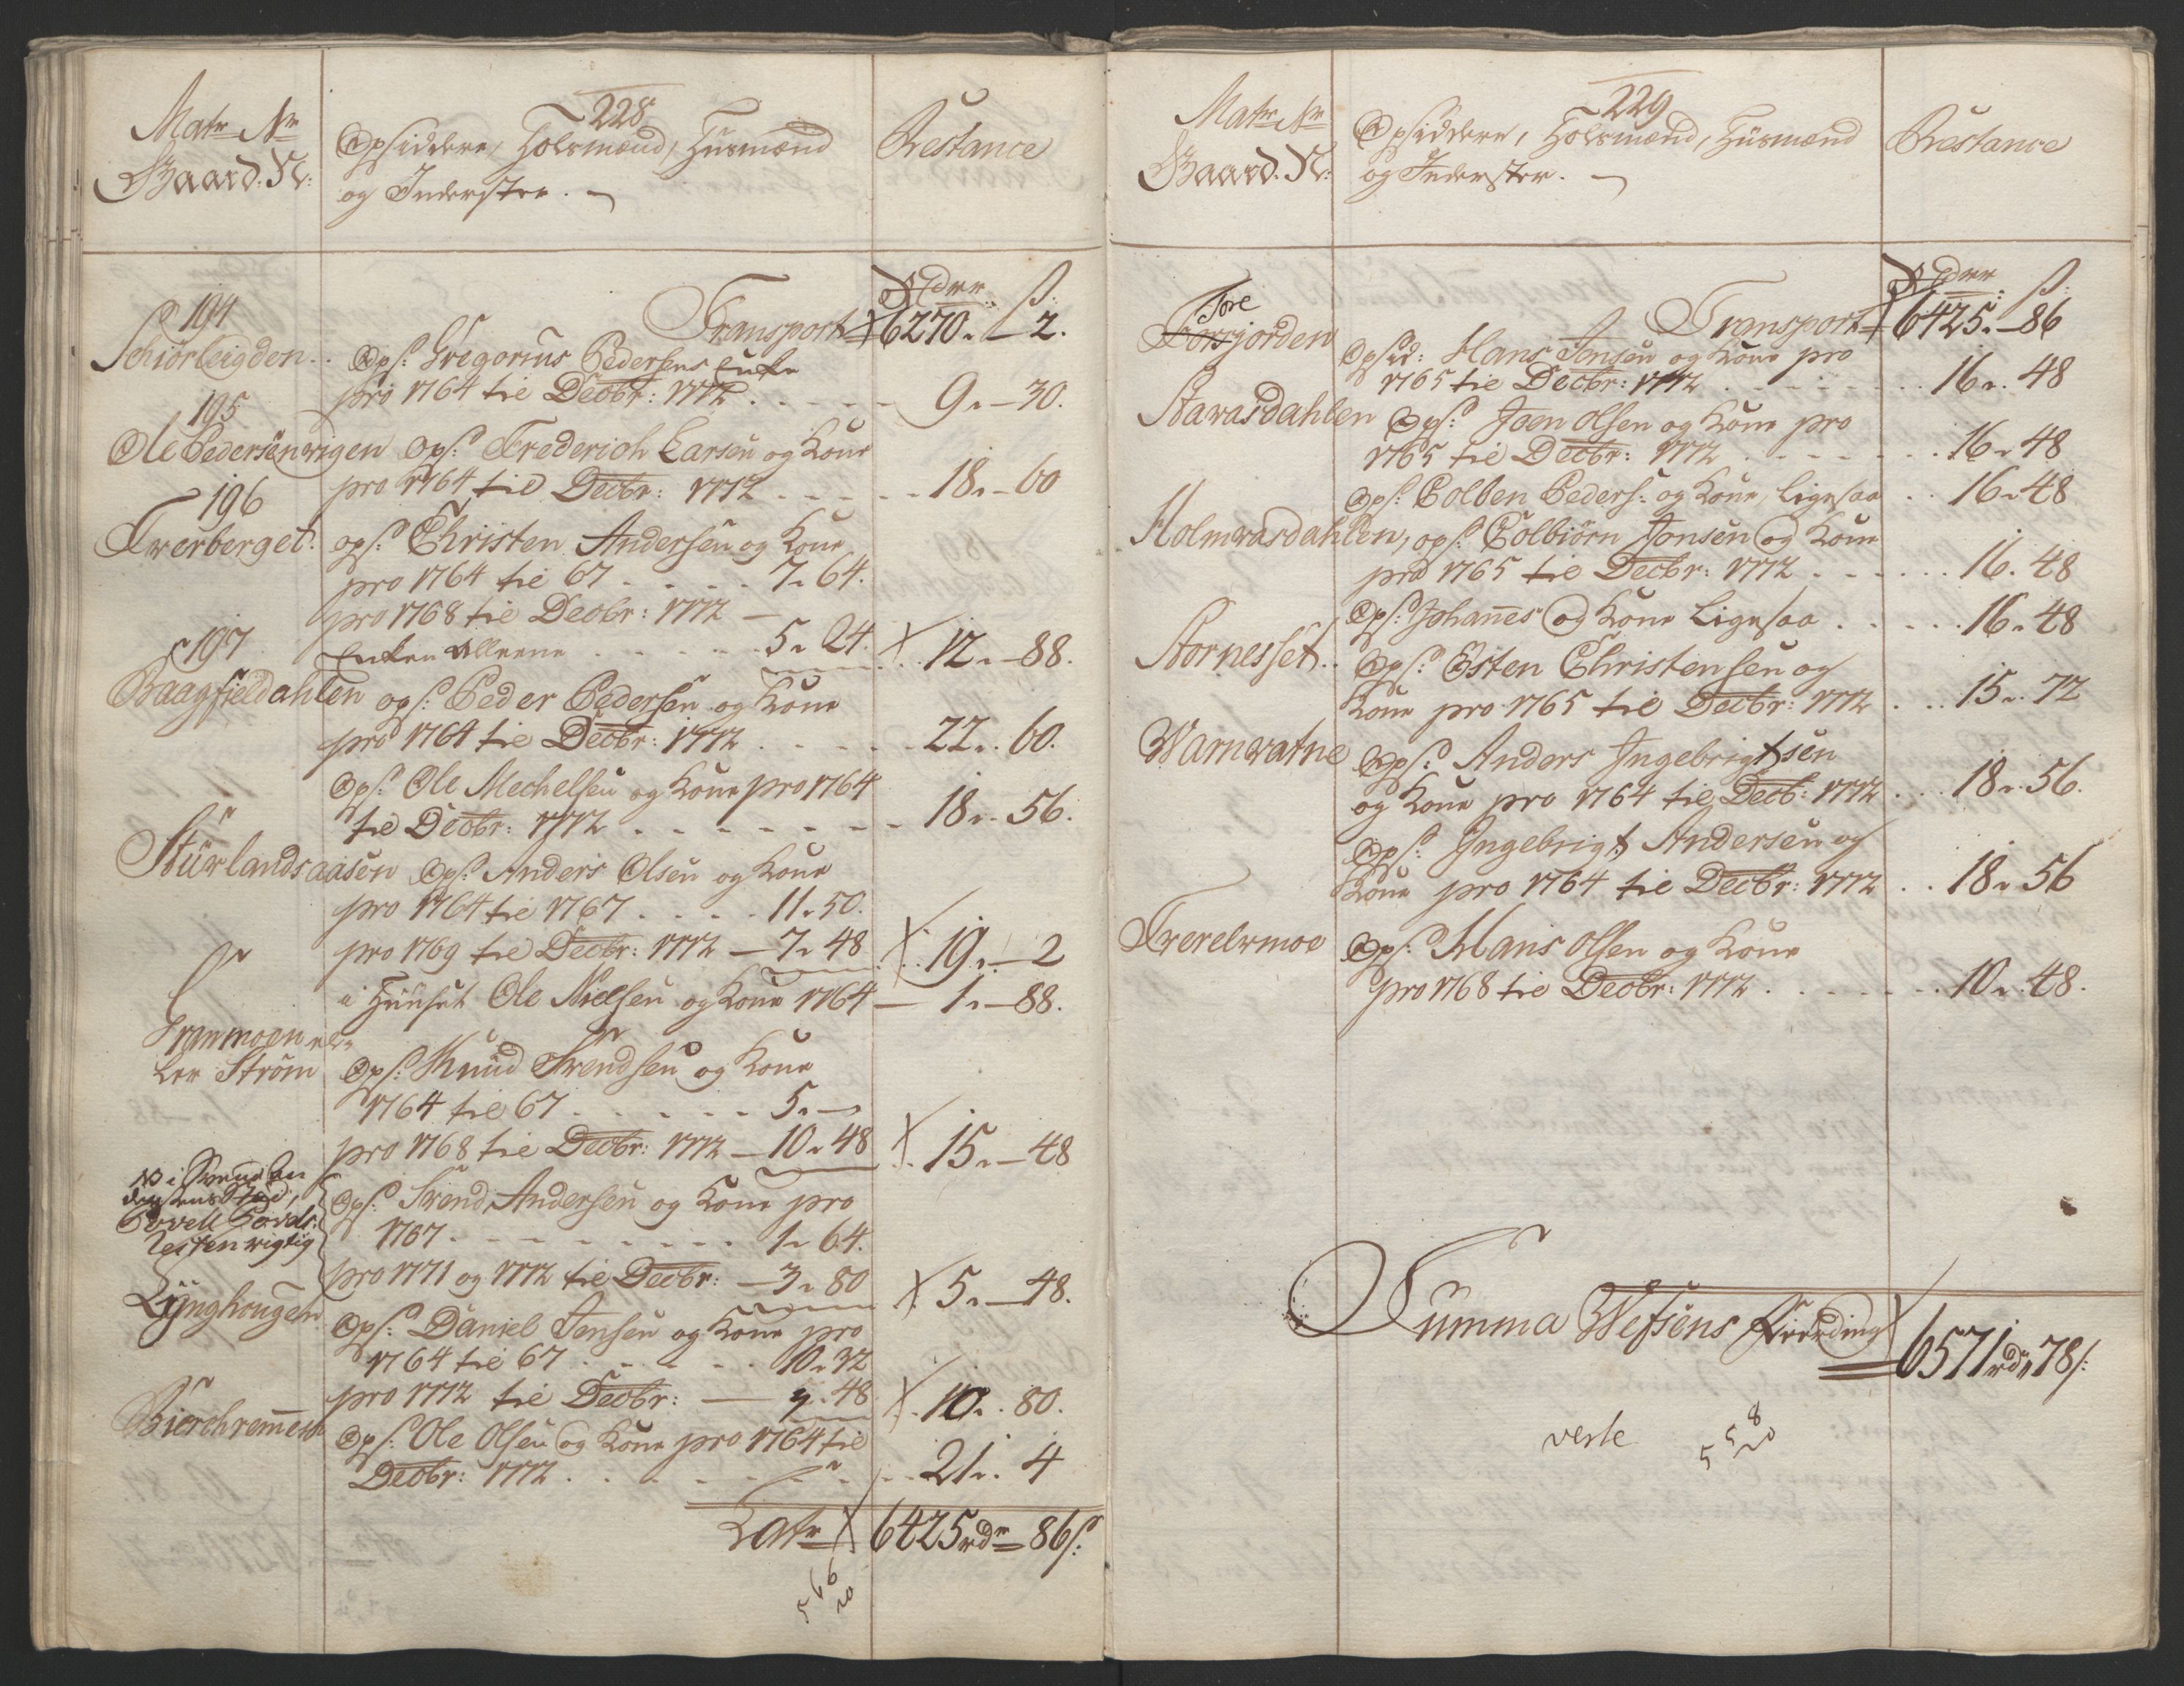 228
Matr Nr
Gaard. N:
Opsiddere, Folsmænd, Huusmænd
og Inderster.
Restance
Rdlr ß.
Transport 6270. - 2.
194
Schiorleigden. Ops: Gregorius Pedersens Enke
pro 1764 til Decbr: 1772 . . . . 9. - 30.
195
Ole Pedersenvigen Ops: Frederich Larsen og Kone
pro 1764 til Decbr: 1772 . . . . 18. - 60
196
Tverberget. ops: Christen Andersen og Kone
pro 1764 til 67 . . . . 7. 64.
pro 1768 til Decbr: 1772 —
Enken alleene . . . . 5. 24. 12. - 88.
197
Baagfieldahlen ops: Peder Pedersen og Kone
pro 1764 til Decbr: 1772 . . . . 22. 60.
Ops: Ole Mechelsen og Kone pro 1764
til Decbr: 1772 . . . . 18. - 56.
Stuurlandsaasen Ops: Anders Olsen og Kone
pro 1764 til 1767 . . . . 11. 50.
pro 1769 til Decbr: 1772 — 7. 48 19. - 2
i Huuset Ole Nielsen og Kone 1764 — 1. - 88.
Granmoen el-
ler Strøm Ops: Knud Svendsen og Kone
1764 til 67 . . . . 5. —
pro 1768 til Decbr: 1772 — 10. 48 15. - 48
Ops: Svend Andersen og Kone pro
1767 . . . . 1. 64.
pro 1771 og 1772 til Decbr: — 3. 80 5. - 48.
Lynghougen Ops: Daniel Jensen og Kone pro
1764 til 67 . . . . 10. 32
pro 1772 til Decbr: — . 48 10. 80.
Ops: Ole Olsen og Kone pro 1764 til
Decbr: 1772 . . . . 21. 4
Latr 6425 rdr 86 ß:
566
20
229
Matr Nr
Gaard. N:
Opsiddere, Folsmænd, Huusmænd
og Inderster.
Restance
Rdlr ß:
Transport 6425. - 86
Tore
jorden Opsid: Hans Jonsen og Kone pro
1765 til Decbr: 1772 . . . . 16. 48
Stavasdahlen Ops: Joen Olsen og Kone pro
1765 til Decbr: 1772 . . . . 16. 48
Ops: Colben Peders: og Kone, ligesaa . . 16. 48
Holmvasdahlen, ops: Colbiørn Jonsen og Kone
pro 1765 til Decbr: 1772 . . . . 16. 48
Ops: Johannes og Kone Ligesaa . . . . 16. 48
Stornesset. Ops: Esten Christensen og
Kone pro 1765 til Decbr: 1772 . . 15. 72
Warnvatne Ops: Anders Ingebrigtsen
og Kone pro 1764 til Decb: 1772 . . 18. 56.
Ops: Ingebrigt Andersen og
Kone pro 1764 til Decbr: 1772 . . 18. 56
Tverelvmoe Ops: Hans Olsen og Kone
pro 1768 til Decbr: 1772 . . . . 10. 48.
Summa Wefsens Fierding 6571 rdr 78 ß:
558
20